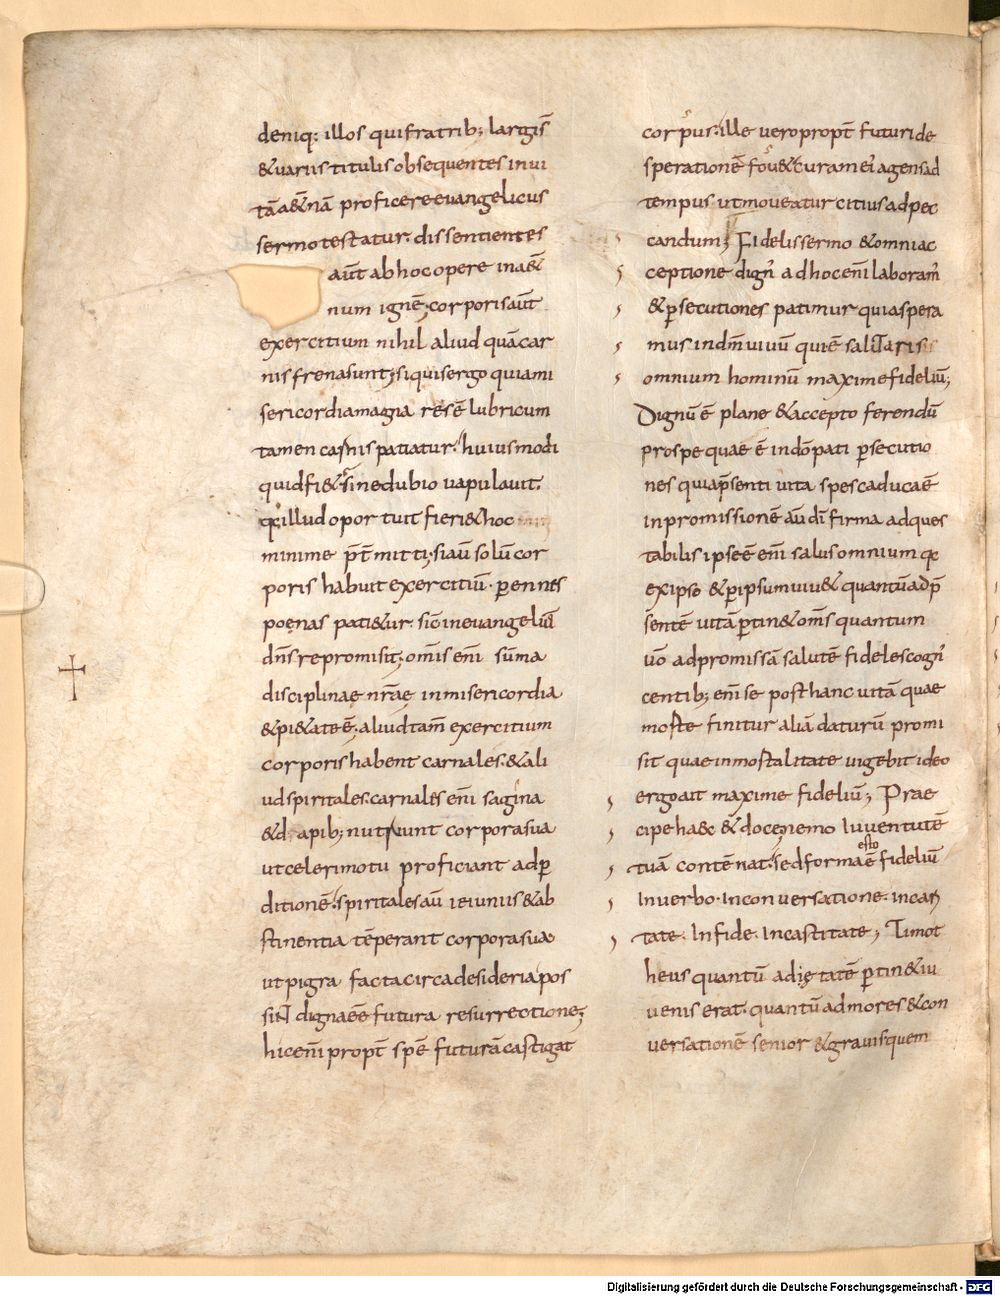 deniq: illos qui fratrib; largis
& variis titulis obsequentes in ui
tā a&nā proficere euangelicus
sermo testatur. dissentientes
aūt ab hoc opere in a&
num ignē; corporis aūt
exercitium nihil aliud quā car
nis frena sunt; siquis ergo quia mi
sericordia magia resē lubricum
tamen carnis patiatur. huiusmodi
quid fi& sine dubio uapulauit.
illud oportuit fieri & hoc
minime p̄t mitti. si aū solū cor
poris habuit exercitiū. perennes
poenas pati&ur. sic in euangeliū
dn̄s repromisit; om̄is en̄i sūma
disciplinae nr̄ae in misericordia
& pi&ate ē; aliud tam̄ exercitium
corporis habent carnales. & ali
ud spiritales. carnales en̄i sagina
& dapib; nutriunt corpora sua
ut celeri motu proficiant ad per
ditionē. spiritales aū ieiuniis & ab
stinentia tēperant corpora sua
ut pigra facta circa desideria pos
sint digna eē futura resurrectione;
hic en̄i propt̄ spē futurā castigat
corpus. ille uero propt̄ futuri de
sperationē fou& curam ei agens ad
tempus ut moueatur citius ad pec
candum; Fidelis sermo & omni ac
ceptione dign̄ ad hoc en̄i laboram̄
& psecutiones patimur quia spera
mus in dm̄ uiuū qui ē salutaris
omnium hominū maxime fideliū;
Dignū ē plane & accepto ferendū
pro spe quae ē in dō pati psecutio
nes quia psenti uita spes caduca ē
in promissionē aū di firma adq; es
tabilis ipse ē en̄i salus omnium
ex ipso & p ipsum uiu& quantū ad p
sentē uitā ptin& om̄s quantum
uō ad promissā salutē fideles cogn̄
centib; en̄i se post hanc uitā quae
morte finitur aliā daturū promi
sit quae inmortalitate uigebit ideo
ergo ait maxime fideliū; Prae
cipe haec & doce; nemo Iuuentutē
esto
tuā contēnat. sed forma ē fideliū
In uerbo. In conuersatione. in cari
tate. In fide. In castitate; Timot
heus quantū ad ie tatē ptin& iu
uenis erat. quantū ad mores & con
uersationē senior & grauis quem
Digitalisierung gefördert durch die Deutsche Forschungsgemeinschaft - DFG